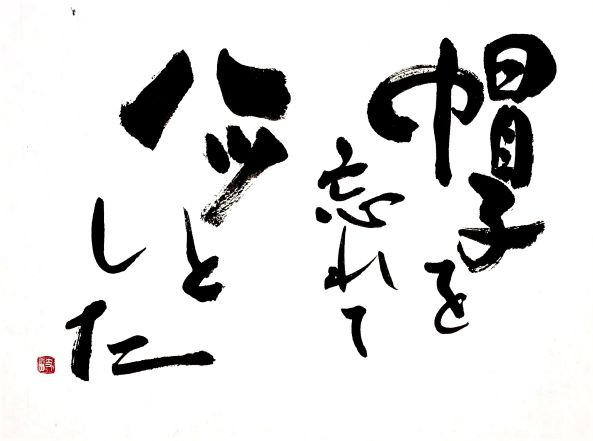 帽子を
忘れて
ハッと
した